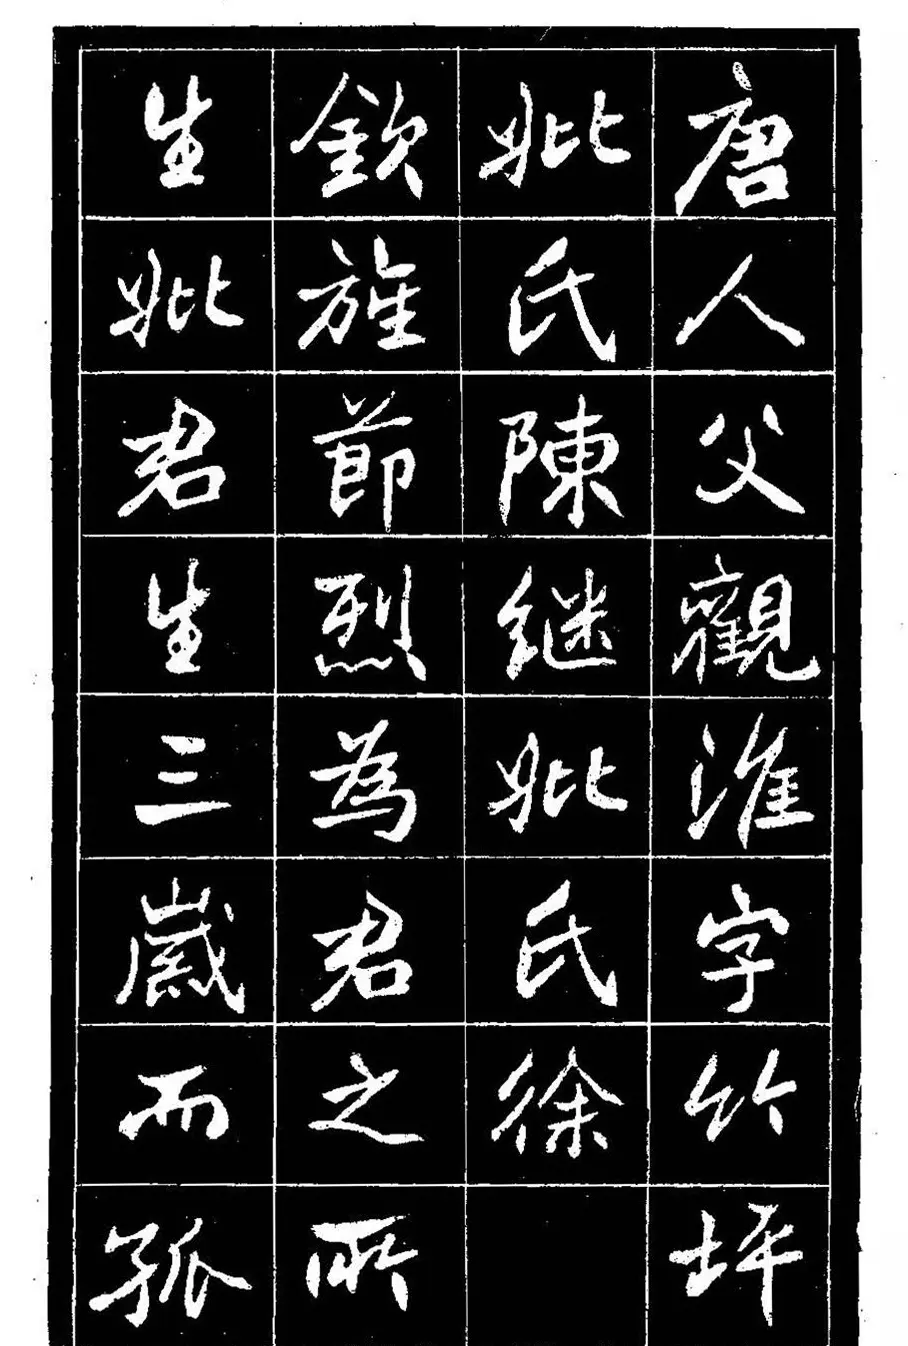 唐人父觀淮字竹坪
妣氏陳繼妣氏徐
欽旌節烈為君之所
生妣君生三歲而孤